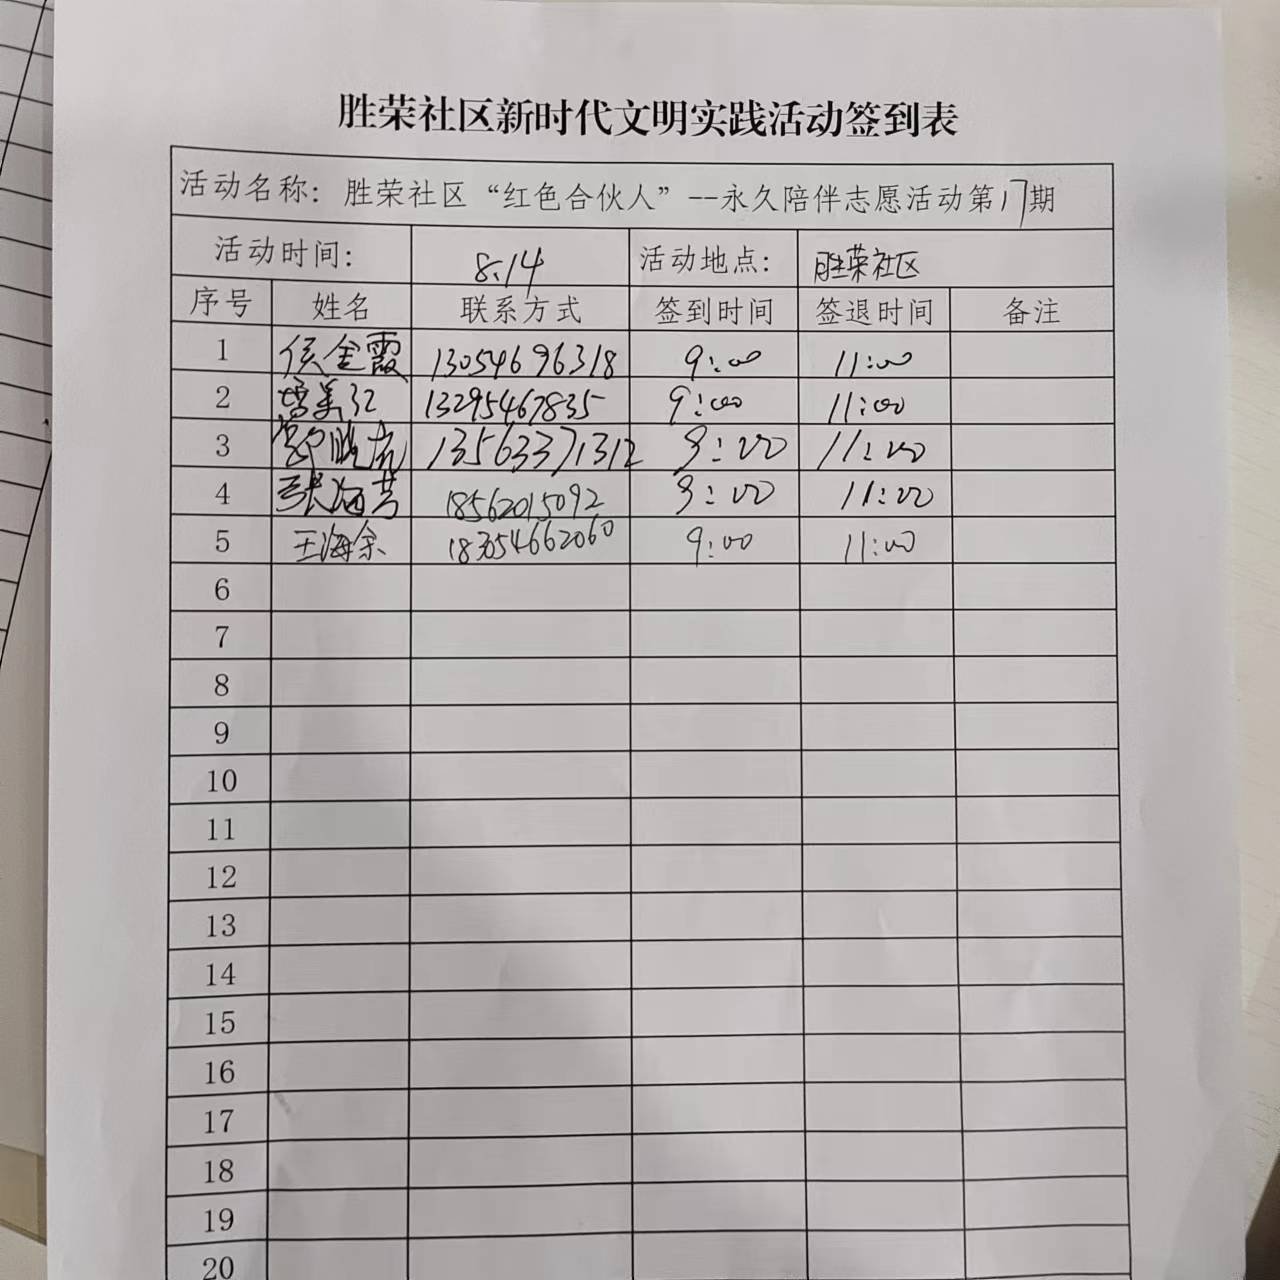 胜荣社区新时代文明实践活动签到表
活动名称：胜荣社区“红色合伙人”--永久陪伴志愿活动第17期
活动时间： 8.14 活动地点： 胜荣社区
序号 姓名 联系方式 签到时间 签退时间 备注
1 侯金霞 13054696318 9:00 11:00
2 美红 13295467835 9:00 11:00
3 晓 13563371312 9:00 11:00
4 张海芹 18562015092 9:00 11:00
5 王海余 183054662060 9:00 11:00
6
7
8
9
10
11
12
13
14
15
16
17
18
19
20